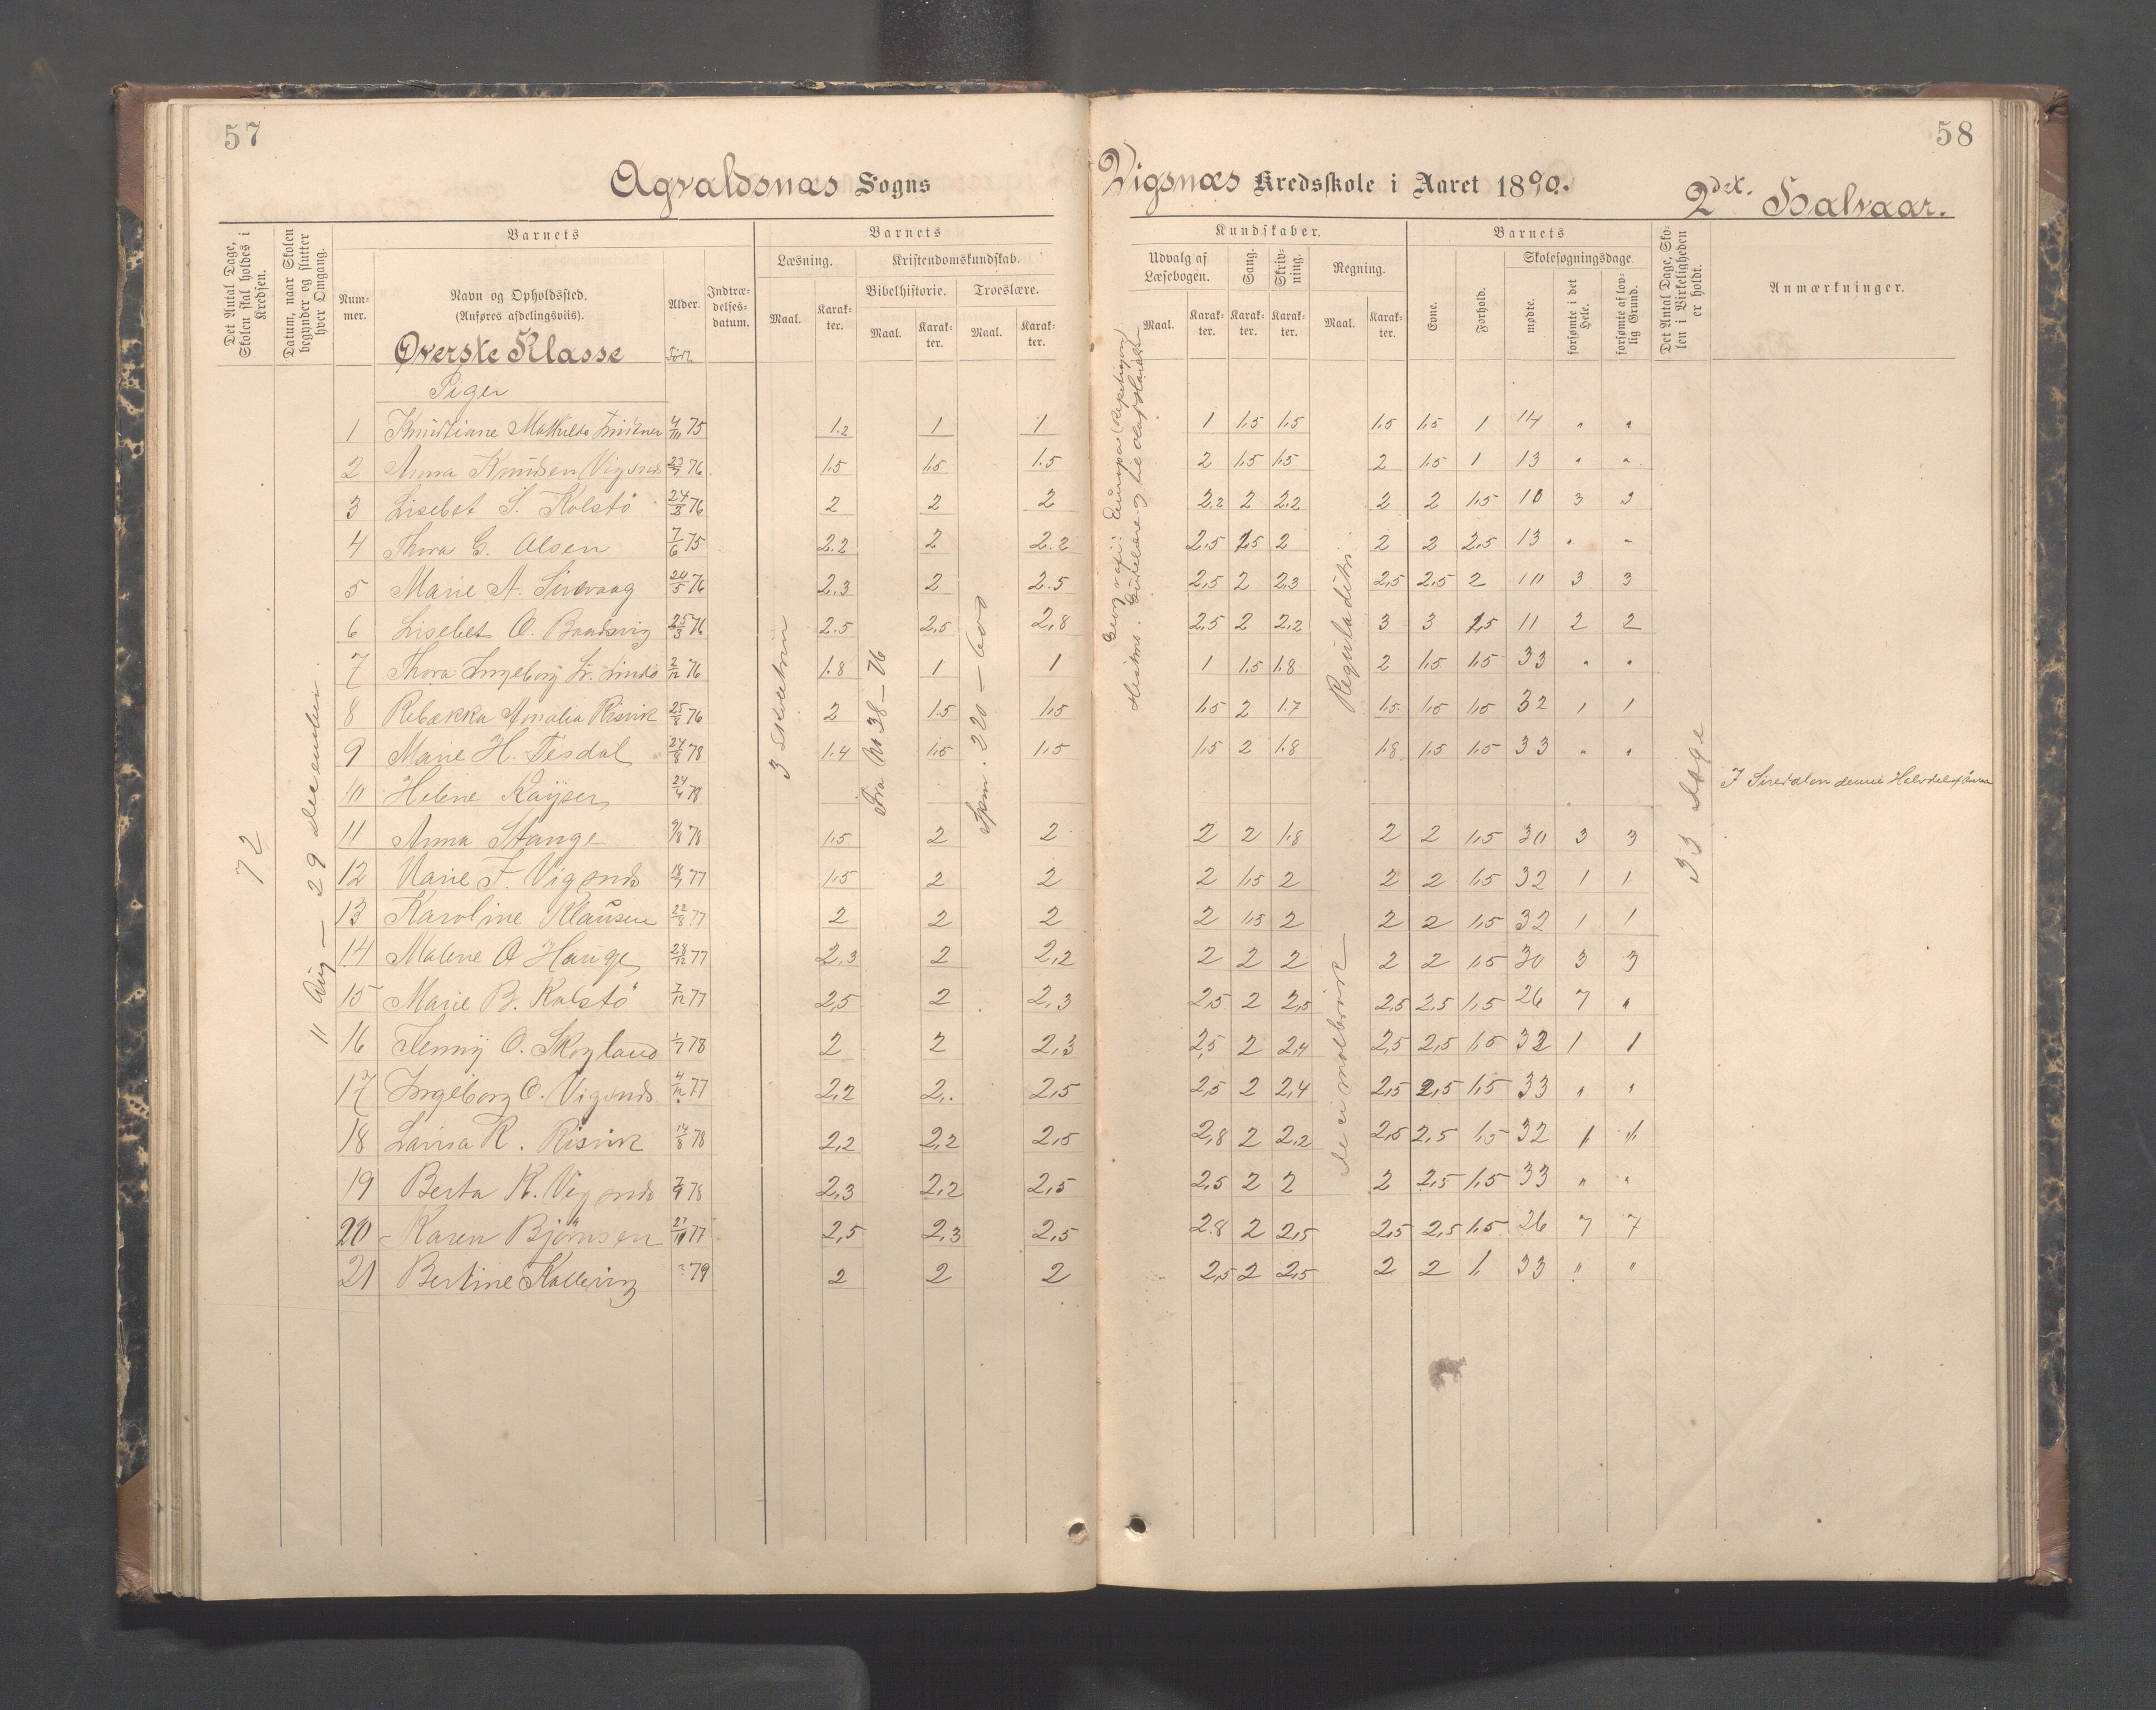 57
58
Agvaldsnæs Sogns
Vigsnæs Kredsskole i Aaret 1890.
2det. Halvaar.
Det Antal Dage, Skolen skal holdes i Kredsen.
Datum, naar Skolen begynder og slutter hver Omgang.
Barnets
Nummer.
Navn og Opholdssted.
(Anføres afdelingsviis).
Alder.
Indtrædelsesdatum.
Barnets
Læsning.
Kristendomskundskab.
Bibelhistorie.
Troeslære.
Maal.
Karakter.
Maal.
Karakter.
Maal.
Karakter.
Kundskaber.
Udvalg af Læsebogen.
Sang.
Skrivning.
Regning.
Maal.
Karakter.
Karakter.
Karakter.
Maal.
Karakter.
Barnets
Evne.
Forhold.
Skolesøgningsdage.
mødte.
forsømte i det Hele.
forsømte af lovlig Grund.
Det Antal Dage, Skolen i Virkeligheden er holdt.
Anmærkninger.
Øverste Klasse
Født
Piger
72
11 Aug — 29 December
Fra No 38 — 76
Spm. 220 — 600
Reguladetri
decimalbrøk
33 dage
1 Kristiane Mathilde 4/10 75 1.2 1 1 1 1,5 1,5 1,5 1,5 1 14 " "
2 Anna Knudsen Vigsnæs 23/7 76 1.5 1.5 1.5 2 1,5 1,5 2 1.5 1 13 " "
3 Lisebet S. Kolstö 76 2 2 2 2.2 2 2.2 2 2 1.5 10 3 3
4 Thora G. Olsen 7/6 75 2.2 2 2.2 2,5 1,5 2 2 2 2,5 13 " "
5 Marie A. 24/5 76 2.3 2 2.5 2,5 2 2,3 2,5 2,5 2 10 3 3
6 Lisebet O. 25/3 76 2.5 2,5 2,8 2,5 2 2,2 3 3 1,5 11 2 2
7 Thora Ingeborg 2/12 76 1.8 1 1 1 1.5 1.8 2 1.5 1.5 33 " "
8 Rebækka Amalia Risvik 25/8 76 2 1.5 1,5 1,5 2 1.7 1.5 1,5 1,5 32 1 1
9 Marie H. Tesdal 24/8 78 1.4 1.5 1,5 1.5 2 1.8 1.8 1.5 1.5 33 " "
10 Helene Kaÿser 24/4 78
11 Anna Stange 9/8 78 1.5 2 2 2 2 1.8 2 2 1,5 30 3 3
12 Marie F. Vigsnæs 18/7 77 1.5 2 2 2 1,5 2 2 2 1,5 32 1 1
13 Karoline Klausen 22/8 77 2 2 2 2 1,5 2 2 2 1,5 32 1 1
14 Malene O Hauge 28/12 77 2,3 2 2,2 2 2 2 2 2 1,5 30 3 3
15 Marie B. Kolstö 7/12 77 2,5 2 2,3 2,5 2 2,5 2,5 2,5 1,5 26 7 "
16 Jenny O. Skogland 1/7 78 2 2 2,3 2,5 2 2,4 2,5 2,5 1,5 32 1 1
17 Ingeborg O. Vigsnæs 4/12 77 2,2 2,. 2,5 2,5 2 2,4 2,5 2,5 1,5 33 " "
18 Lavisa R. Risvik 14/8 78 2,2 2,2 2,5 2,8 2 2,2 2,5 2,5 1,5 32 1 1
19 Berta K. Vigsnæs 7/9 78 2,3 2,2 2,5 2,5 2 2 2 2,5 1,5 33 " "
20 Karen Bjørnsen 27/10 77 2,5 2,3 2,5 2.8 2 2,5 2,5 2,5 1,5 26 7 7
21 Bertine 79 2 2 2 2,5 2 2,5 2 2 1, 33 " "